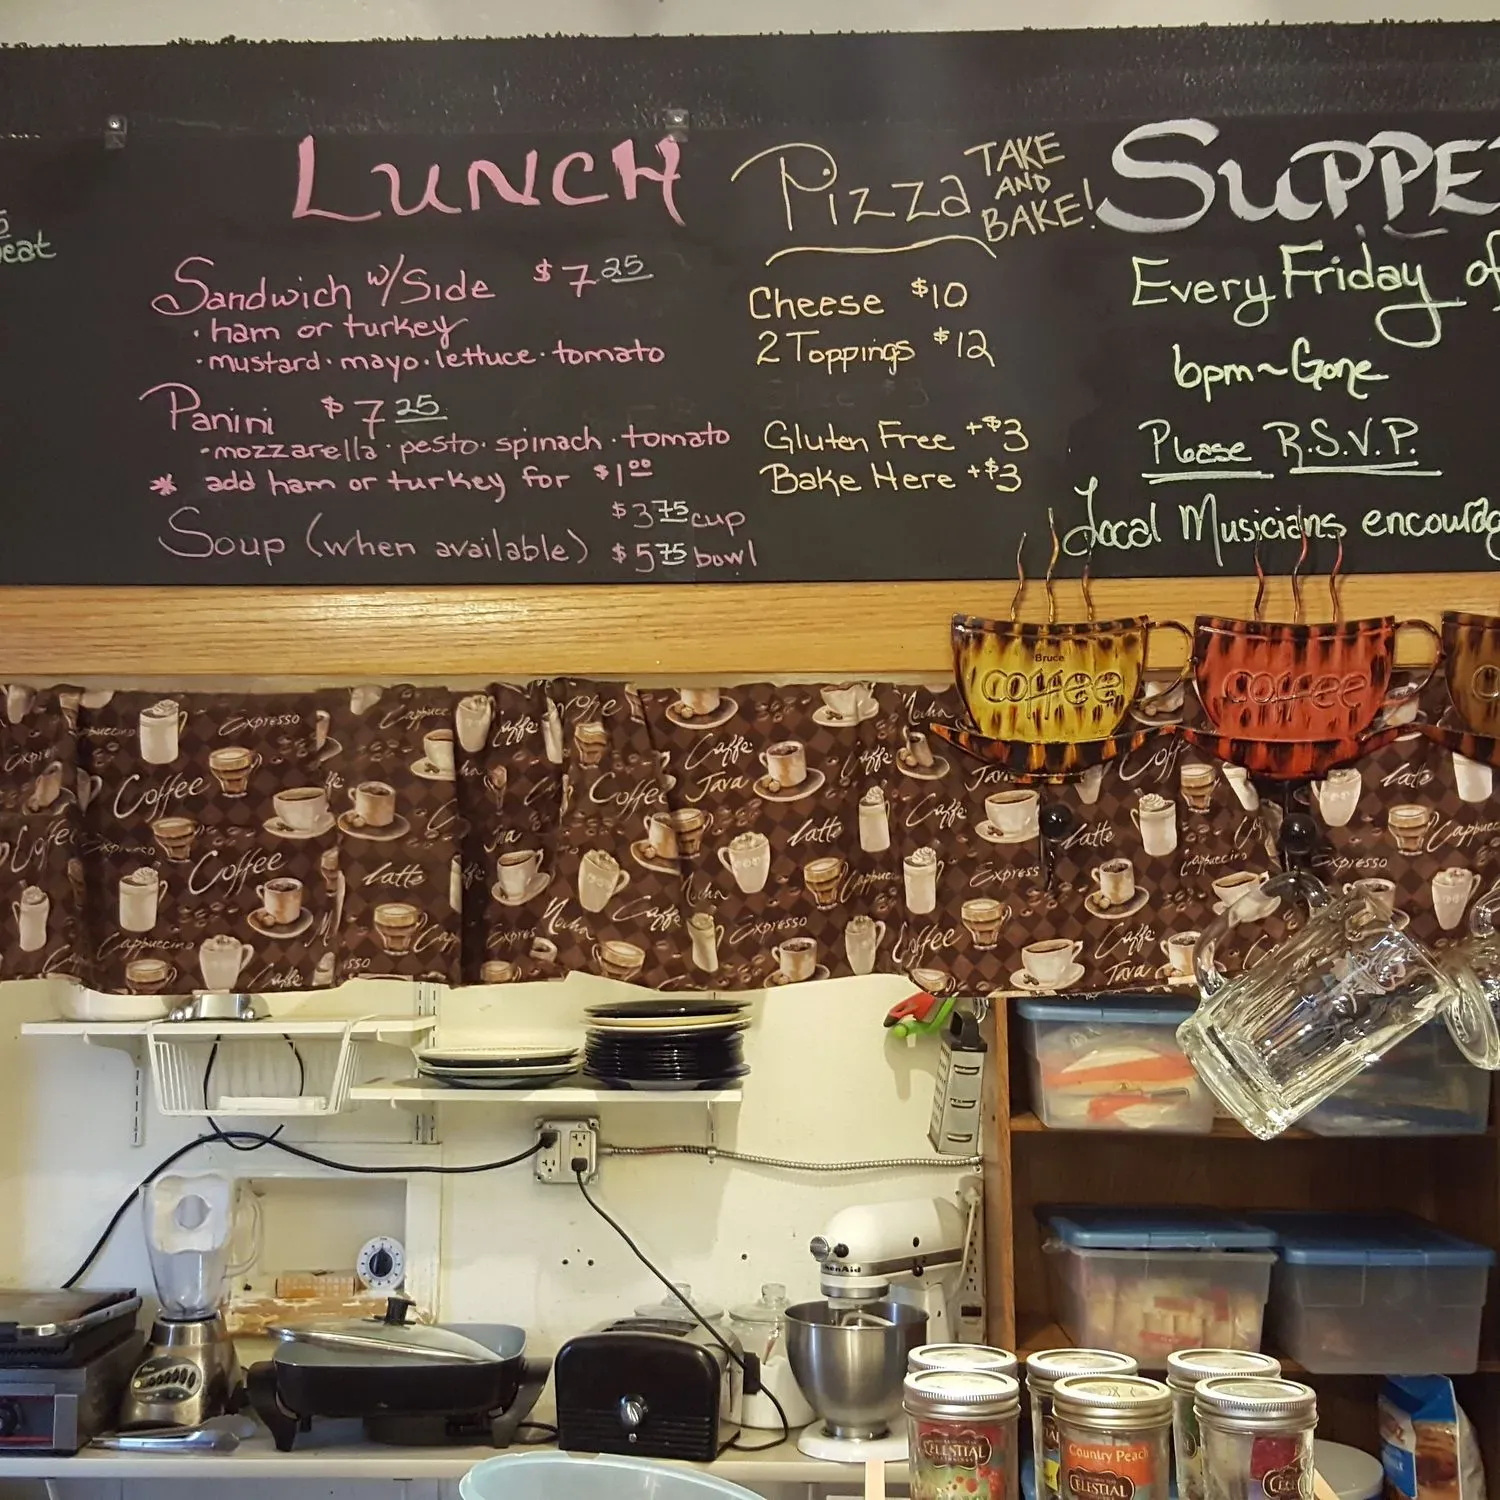 LUNCH
Sandwich w/Side $7.25
• ham or turkey
• mustard • mayo • lettuce • tomato
Panini $7.25
• mozzarella • pesto • spinach • tomato
* add ham or turkey for $1.00
Soup (when available) $3.75 cup
$5.75 bowl
Pizza
TAKE
AND
BAKE!
Cheese $10
2 Toppings $12
Gluten Free +$3
Bake Here +$3
SUPPE
Every Friday of
6pm~Gone
Please R.S.V.P.
Local Musicians encourag
Bruce
coffee
coffee
Expresso
Coffee
Coffee
Cappuccino
Latte
Coffee
Caffe
Java
Latte
Expresso
Mocha
Caffe
Latte
Coffee
Caffe
Java
Expresso
Latte
KitchenAid
CELESTIAL
Country Peach
CELESTIAL